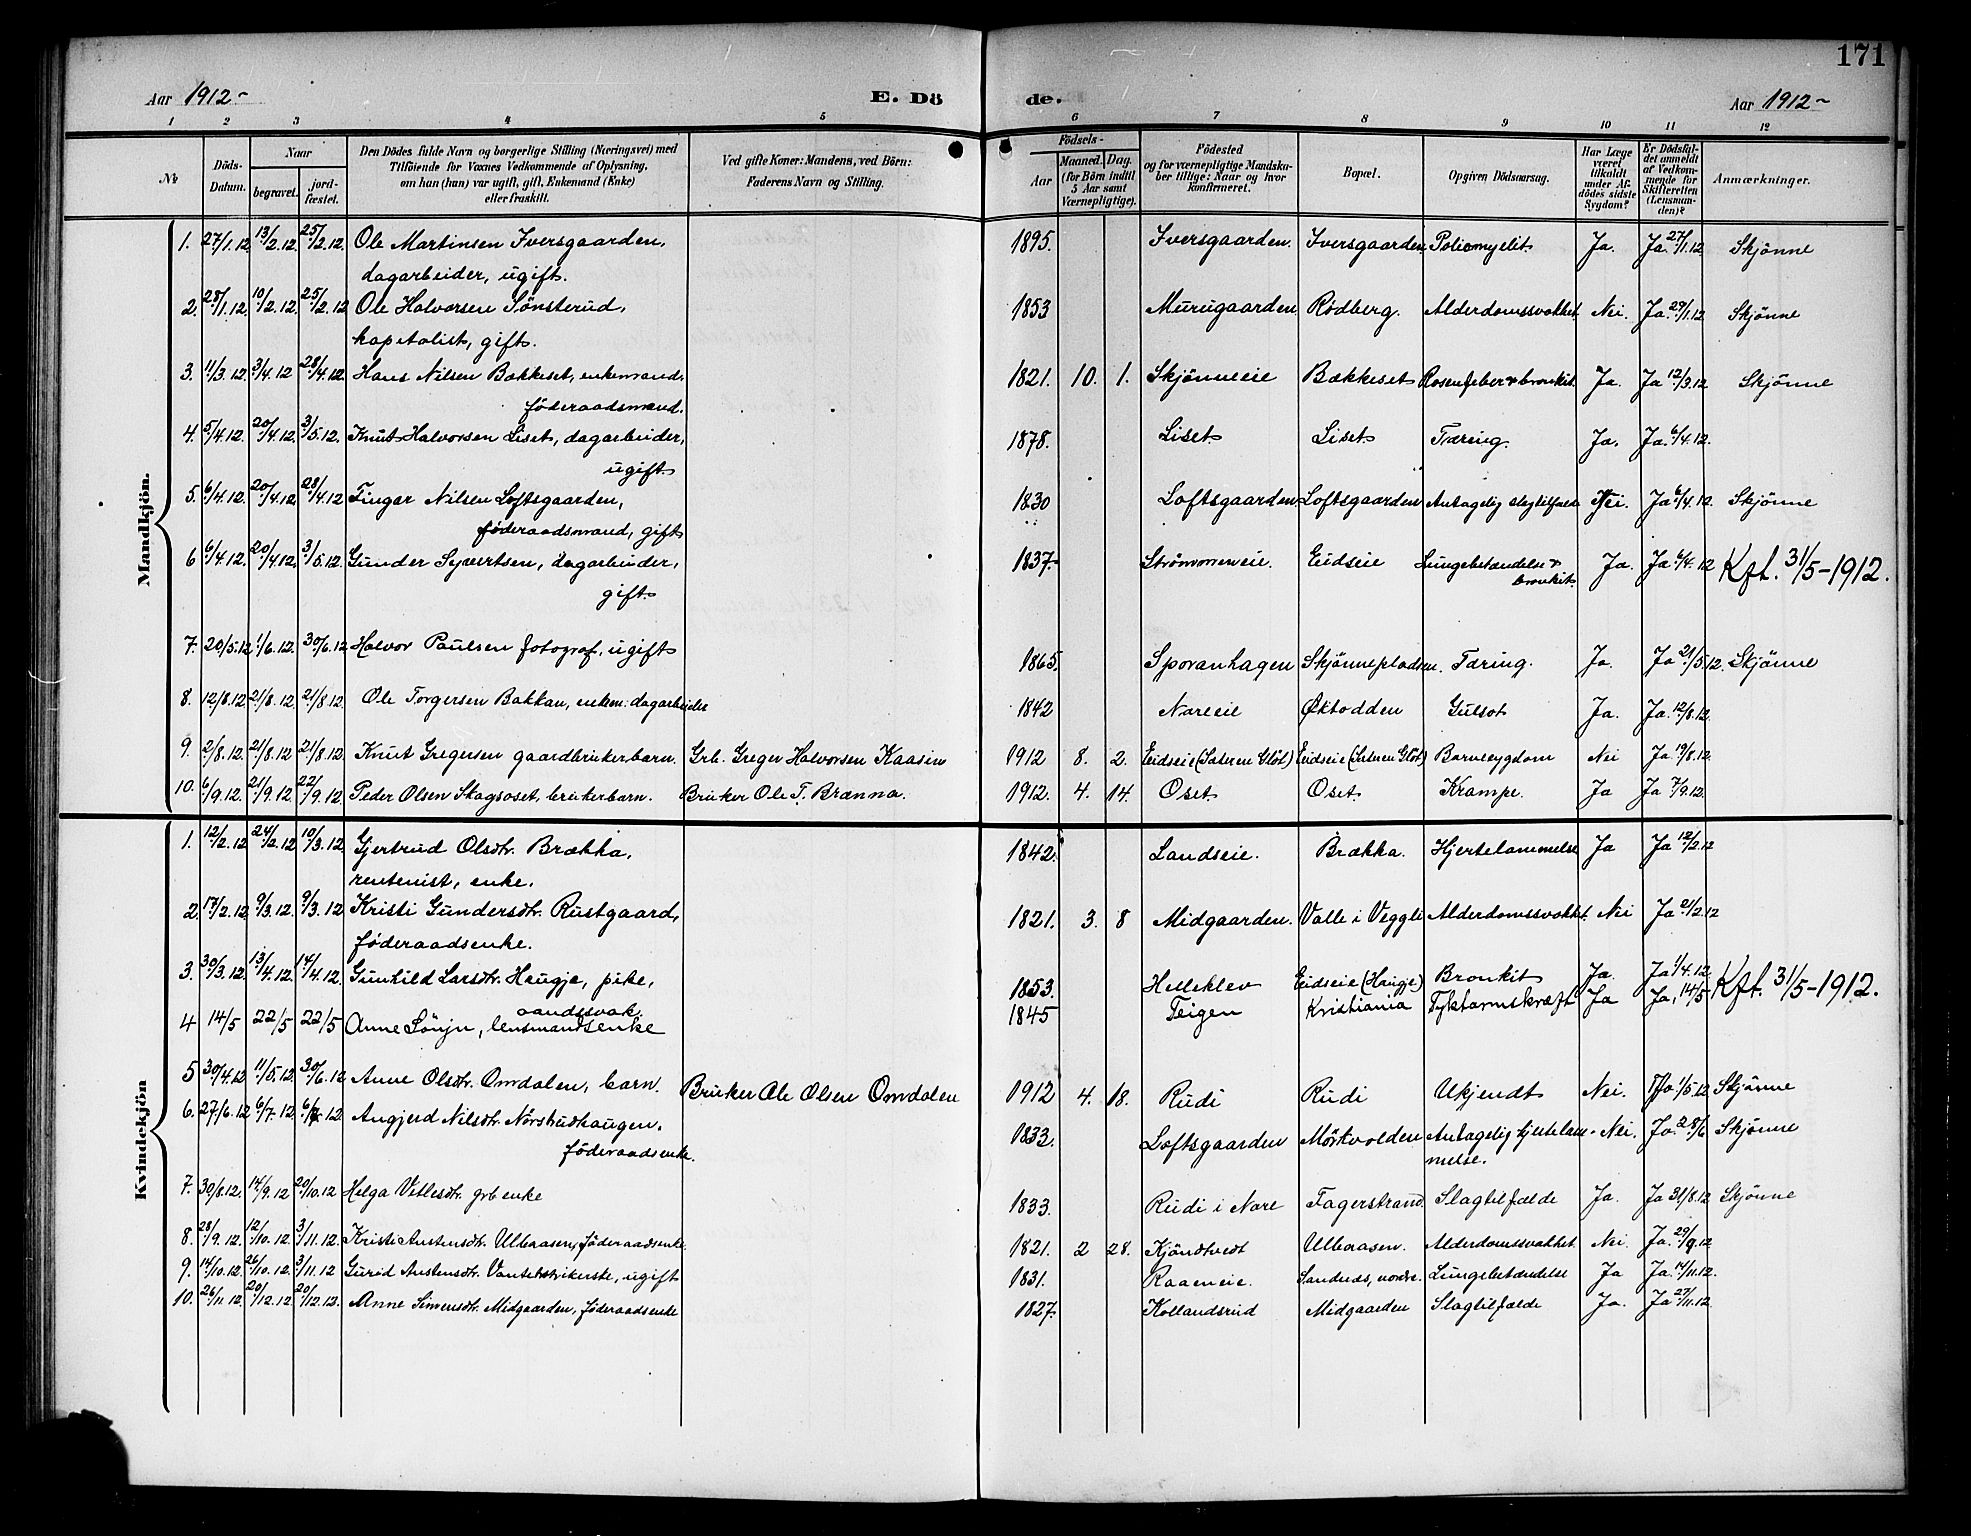 171
Aar 1912-
E. Döde.
Aar 1912-
1 2 3 4 5 6 7 8 9 10 11 12
№
Döds-Datum.
Naar
begravet.
jordfæstet.
Den Dödes fulde Navn og borgerlige Stilling (Næringsvei) med
Tilföiende for Voxnes Vedkommende af Oplysning,
om han (hun) var ugift, gift, Enkemand (Enke)
eller fraskilt.
Ved gifte Koner: Mandens, ved Börn:
Faderens Navn og Stilling.
Födsels-
Aar
Maaned. Dag.
(for Börn indtil
5 Aar samt
Værnepligtige).
Födested
og for værnepligtige Mandskaber tillige: Naar og hvor
konfirmeret.
Bopæl.
Opgiven Dödsaarsag.
Har Læge
været
tilkaldt
under Afdödes sidste
Sygdom?
Er Dödsfaldet anmeldt
af Vedkommende for
Skifteretten
(Lensmanden)?
Anmærkninger.
Mandkjön.
1. 27/1.12 13/2.12 25/2.12 Ole Martinsen Iversgaarden, 1895. Iversgaarden. Iversgaarden. Poliomyelit Ja. Ja 27/1.12 Skjönne
dagarbeider, ugift.
2. 28/1.12 10/2.12 25/2.12 Ole Halvorsen Sönsterud, 1853 Murugaarden Rödberg. Alderdomssvakhet. Nei. Ja. 29/1.12 Skjönne
kapitalist, gift.
3. 11/3.12 3/4.12 28/4.12 Hans Nilsen Bakkeset, enkemand. 1821. 10. 1. Skjönneeie Bækkeset Rosenfeber & bronkit. Ja. Ja 12/3.12 Skjönne
föderaadsmand.
4. 5/4.12. 20/4.12. 3/5.12. Knut Halvorsen Liset, dagarbeider, 1878. Liset Liset Tæring. Ja. Ja. 6/4.12.
ugift
5. 6/4.12. 20/4.12 28/4.12 Fingar Nilsen Loftsgaarden, 1830 Loftsgaarden. Loftsgaarden Antagelig slagtilfælde Nei. Ja 6/4.12 Skjönne
föderaadsmand, gift
6 6/4.12. 20/4.12. 3/5.12. Gunder Syvertsen, dagarbeider, 1837- Strömmeneie. Eidseie Lungebetændelse & Ja. Ja 6/4.12 Kft. 31/5-1912.
gift. bronkit.
7. 20/5.12 1/6.12. 30/6.12 Halvor Paulsen fotograf, ugift 1865. Sporanhagen Skjönnepladsen. Tæring. Ja. Ja 21/5.12. Skjönne
8. 12/8.12 21/8.12 21/8.12 Ole Torgersen Bakkan, enkem. dagarbeider 1842 Nore eie Øktodden Gulsot Ja. Ja. 12/8.12.
9. 2/8.12. 21/8.12 21/8.12. Knut Gregersen gaardbrukerbarn. Grb. Greger Halvorsen Kaasin 1912 8. 2. Eidseie Eidseie Barnesygdom Nei Ja 19/8.12.
10. 6/9.12. 21/9.12 22/9.12 Peder Olsen Skagsoset, brukerbarn. Bruker Ole T. Brænna. 1912. 4. 14. Oset Oset. Krampe. Ja Ja 7/9.12.
Kvindekjön
1. 12/2.12 24/2.12 10/3.12 Gjertrud Olsdtr. Brækka, 1842. Landseie. Brækka. Hjertelammelse Ja Ja 12/2.12
rentenist, enke.
2. 17/2.12 9/3.12. 9/3.12 Kristi Gundersdtr. Rustgaard, 1821. 3. 8 Midgaarden. Valle i Veggli Alderdomssvakhet. Nei Ja 21/2.12
föderaadsenke.
3. 30/3.12. 13/4.12. 14/4.12. Gunhild Larsdtr. Haugje, pike, 1853. Helleklev Eidseie (Haugje) Bronkit Ja. Ja 1/4.12. Kft. 31/5-1912.
aandssvak.
4 14/5 22/5 22/5 Anne Sönju, lensmandsenke 1845 Teigen Kristiania Tyktarmskræft Ja Ja, 14/5
5 30/4.12 11/5.12. 30/6.12 Anne Olsdtr. Omdalen, barn. Bruker Ole Olsen Omdalen 1912 4. 18. Rudi Rudi Ukjendt Nei. Ja. 1/5.12 Skjönne
6. 27/6.12 6/7.12 6/7.12 Angjerd Nilsdtr. Nörstrudhaugen. 1833. Loftsgaarden Mörkvolden Antagelig hjertelam- Nei. Ja. 28/6 Skjönne
föderaadsenke. melse.
7. 30/8.12. 14/9.12 20/10.12 Helga Vetlesdtr. grb enke 1833. Rudi i Nore Fagerstrand. Slagtilfælde Ja. Ja 31/8.12 Skjönne
8. 28/9.12. 12/10.12. 3/11.12. Kristi Austensdtr. Ulberaasen, föderaadsenke. 1821. 2 28. Kjöndtvedt Ulberaasen. Alderdomssvakhet. Nei. Ja. 29/9.12
9. 14/10.12. 26/10.12. 3/11.12 Gurid Austensdtr. Vantestrikerske, ugift 1831. Raaeneie. Sandnes, nordre. Lungebetændelse Ja Ja. 14/11.12.
10. 26/11.12. 20/12.12 20/12.12. Anne Simensdtr. Midgaarden, föderaadsenke 1827. Kollandsrud Midgaarden Slagtilfælde Ja. Ja 27/11.12